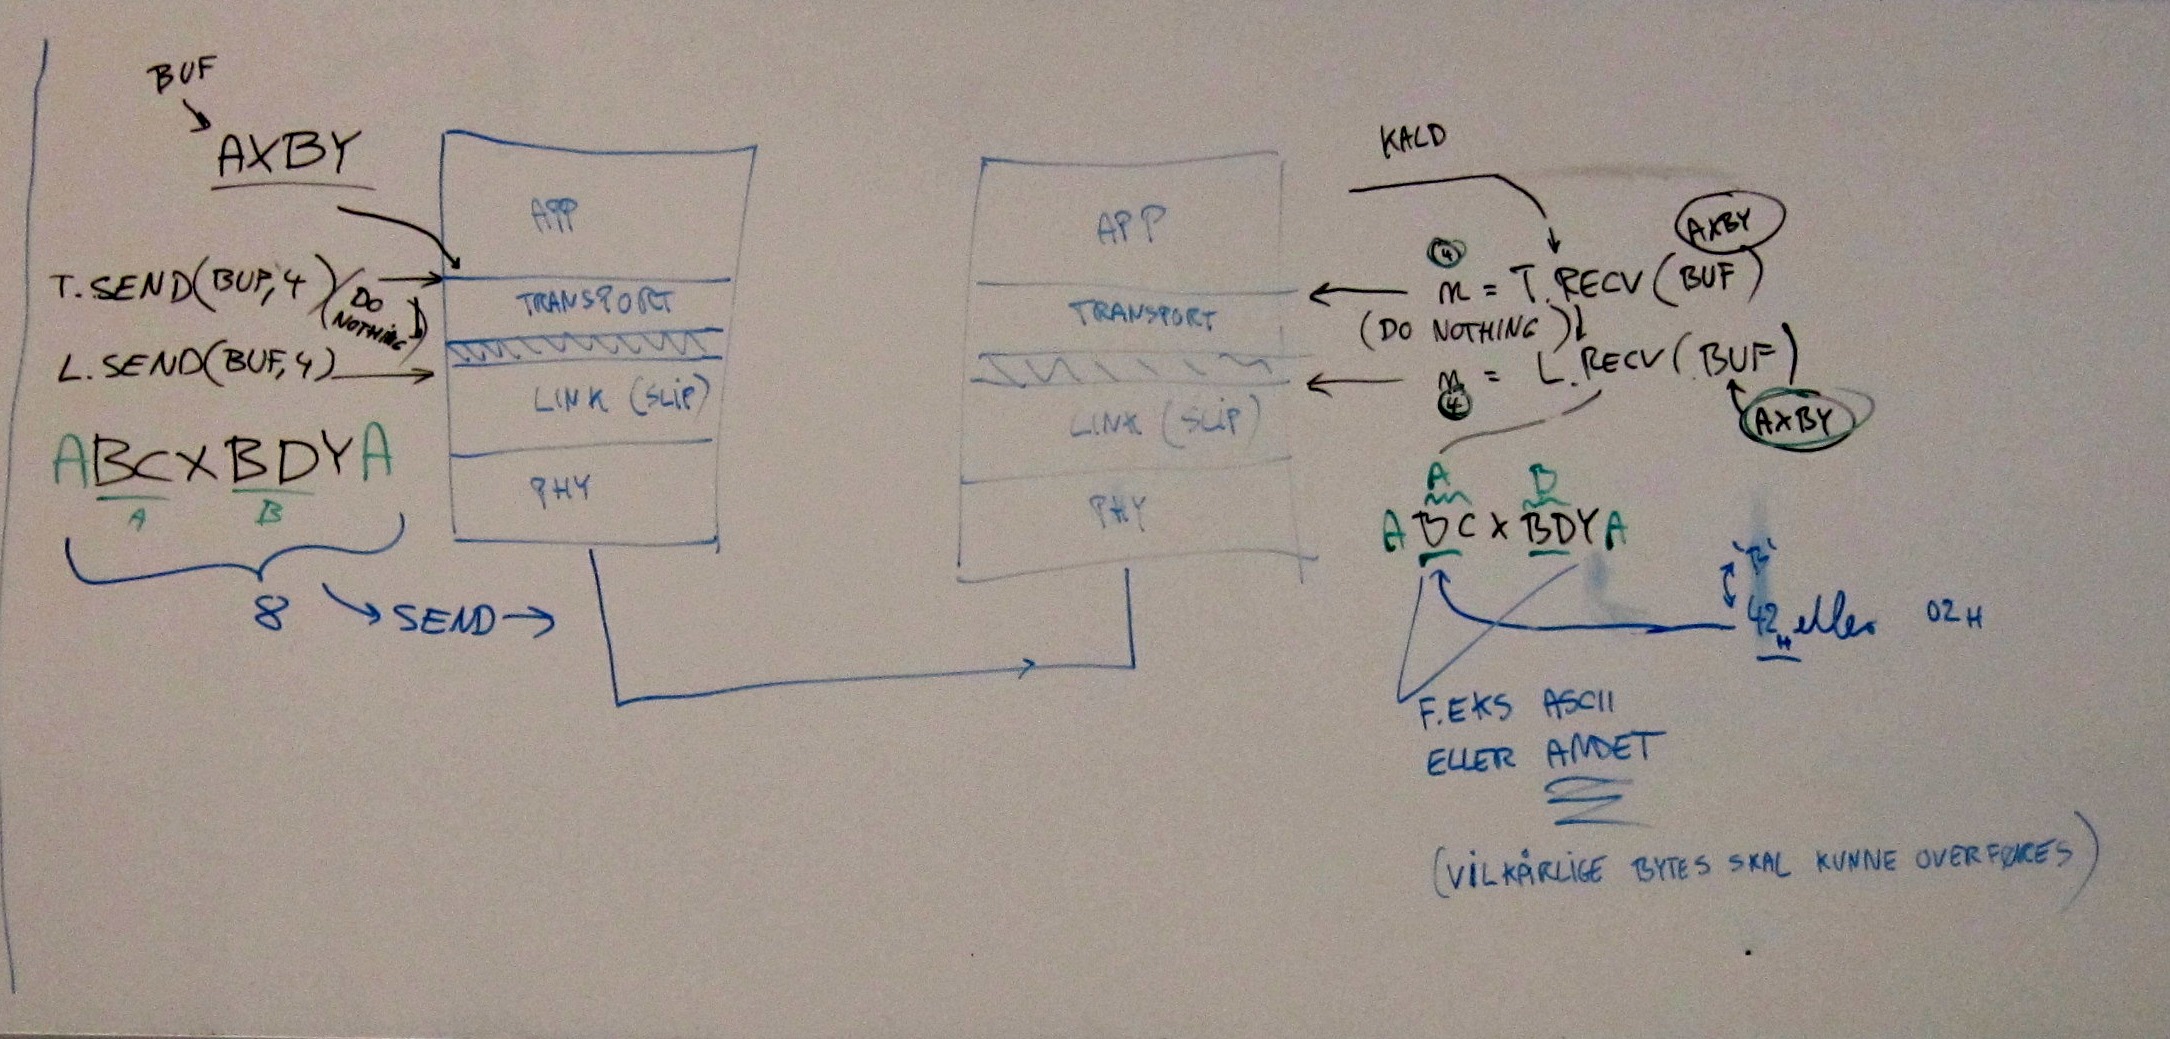 BUF
AXBY
T.SEND(BUF,4)
(DO NOTHING)
L.SEND(BUF,4)
ABCXBDYA
A B
8
SEND
APP
TRANSPORT
LINK (SLIP)
PHY
APP
TRANSPORT
LINK (SLIP)
PHY
KALD
AXBY
4
n = T.RECV(BUF)
(DO NOTHING)
n = L.RECV(BUF)
4
AXBY
A B
ABCXBDYA
'B'
42H eller 02H
F.EKS ASCII
ELLER ANDET
(VILKÅRLIGE BYTES SKAL KUNNE OVERFØRES)